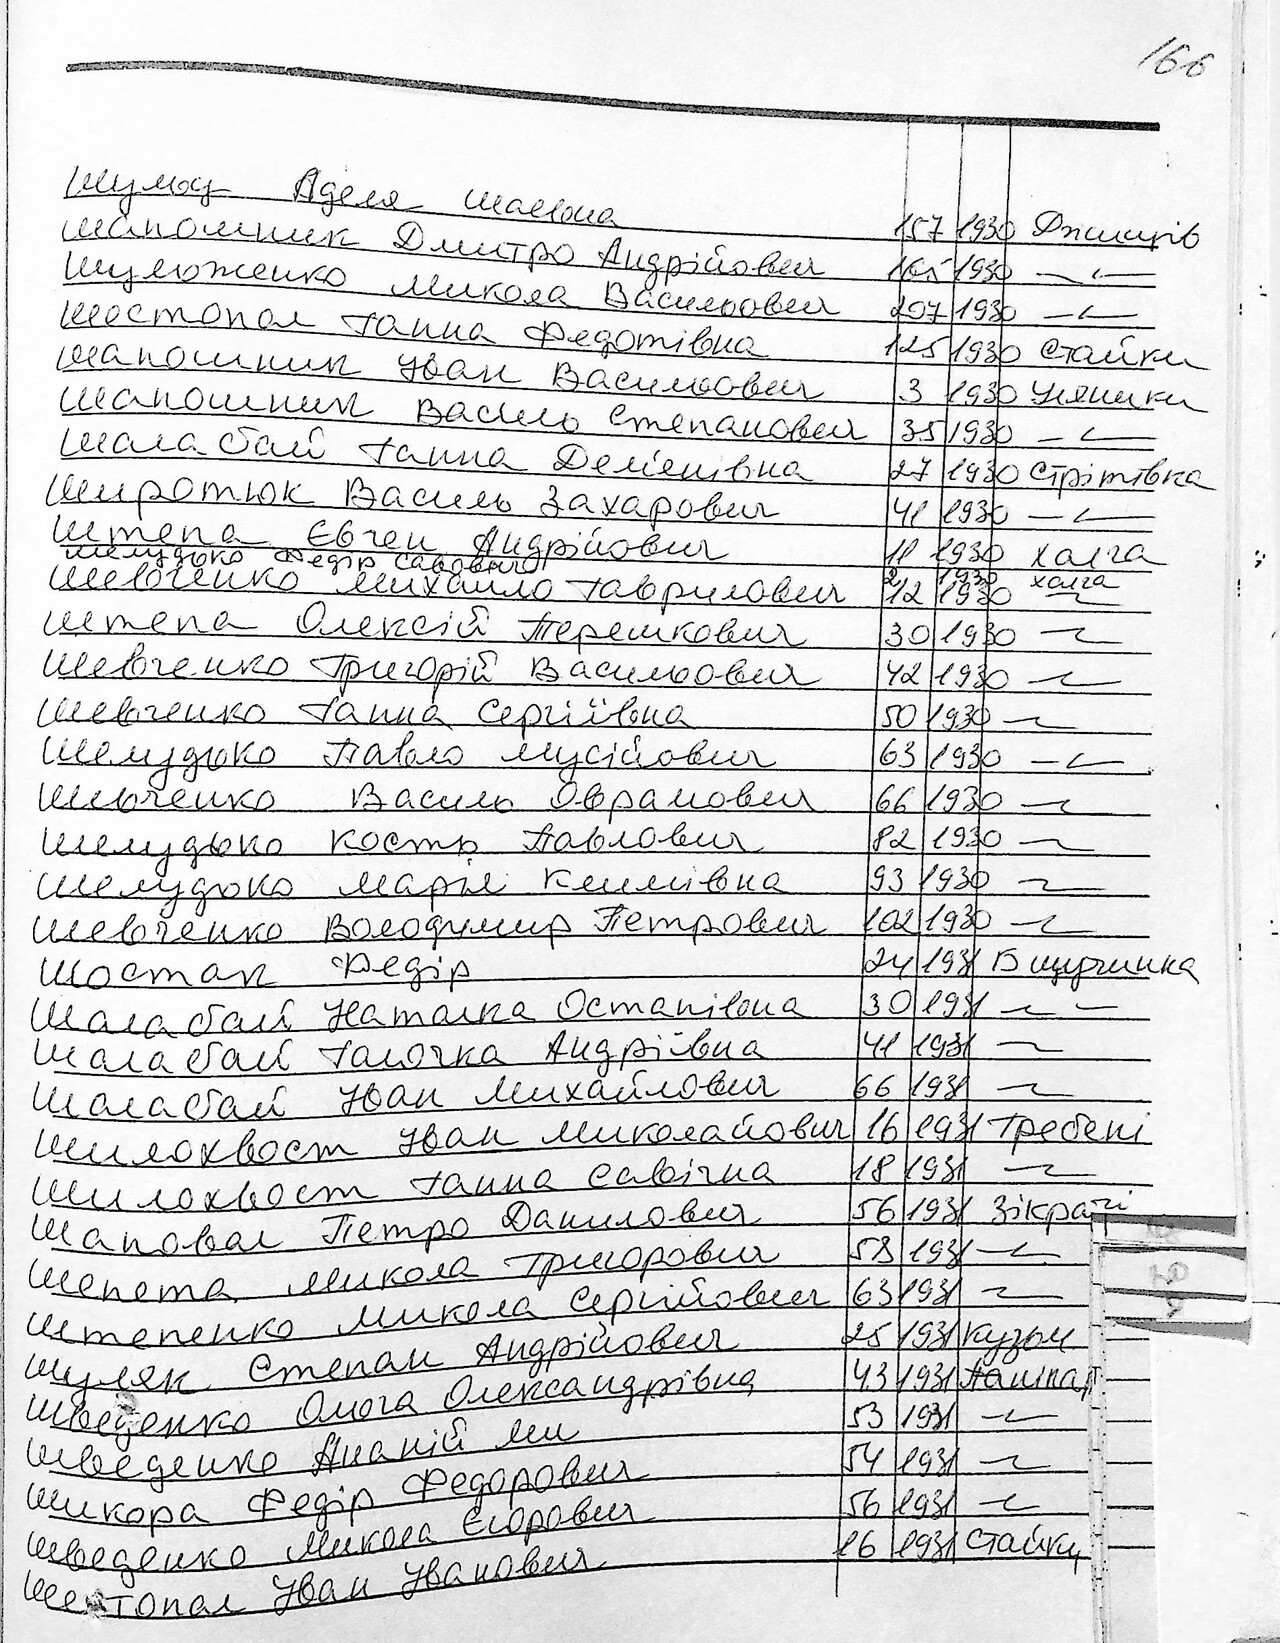 166
Аделя 157 1930 Джинців
Шапошник Дмитро Андрійович 165 1930 —"—
Шулюженко Микола Васильович 207 1930 —"—
Шостопал Ганна Федотівна 125 1930 Стайки
Шапошник Іван Васильович 3 1930 Уляники
Шапошник Василь Степанович 35 1930 —"—
Шалабай Ганна Дем'янівна 27 1930 Стрітівка
Широтюк Василь Захарович 41 1930 —"—
Штепа Євген Андрійович 11 1930 Халча
Шелудько Федір Савович 2 1930 Халча
Шевченко Михайло Гаврилович 12 1930 —"—
Штепа Олексій Терешкович 30 1930 —"—
Шевченко Григорій Васильович 42 1930 —"—
Шевченко Ганна Сергіївна 50 1930 —"—
Шелудько Павло Мусійович 63 1930 —"—
Шевченко Василь Оврамович 66 1930 —"—
Шелудько Кость Павлович 82 1930 —"—
Шелудько Марія Климівна 93 1930 —"—
Шевченко Володимир Петрович 102 1930 —"—
Шостак Федір 24 1931 Бищучинка
Шалабай Наталка Остапівна 30 1931 —"—
Шалабай Галочка Андріївна 41 1931 —"—
Шалабай Іван Михайлович 66 1931 —"—
Шилохвост Іван Миколайович 16 1931 Гребені
Шилохвост Ганна Савічна 18 1931 —"—
Шаповал Петро Данилович 56 1931 Зікрачі
Шепета Микола Григорович 58 1931 —"—
Штепенко Микола Сергійович 63 1931 —"—
Шуляк Степан Андрійович 25 1931 Кузьм
Шведенко Ольга Олександрівна 43 1931
Шведенко Ананій Ми 53 1931 —"—
Шикора Федір Федорович 54 1931 —"—
Шведенко Микола Єгорович 56 1931 —"—
Шостопал Іван Іванович 16 1931 Стайки